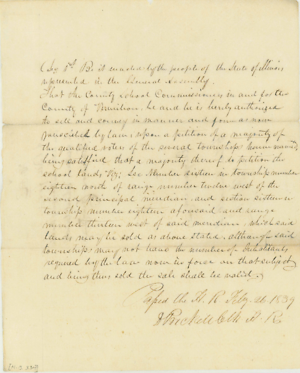 Sec 1st. Be it enacted by the people of the State of Illinois
represented in the General Assembly
That the County School Commissioner in and for the
County of Vermilion, be and he is hereby authorized
to sell and convey in manner and form as now
provided by law, upon a petition of a majority of
the qualified voters of the several townships
being satisfied that a majority thereof so petition the
school lands Viz; Sec Number sixteen in township number
eighteen north of range number twelve west of the
second principal meridian and section sixteen in
township number eighteen aforesaid and range
number thirteen west of said meridian which said
lands may be sold as above stated although said
townships may not have the number of inhabitants
required by the law now in force on that subject
and being thus sold the sale shall be valid
Passed the H. R Feby 1839
J Prickett Clk H. R.